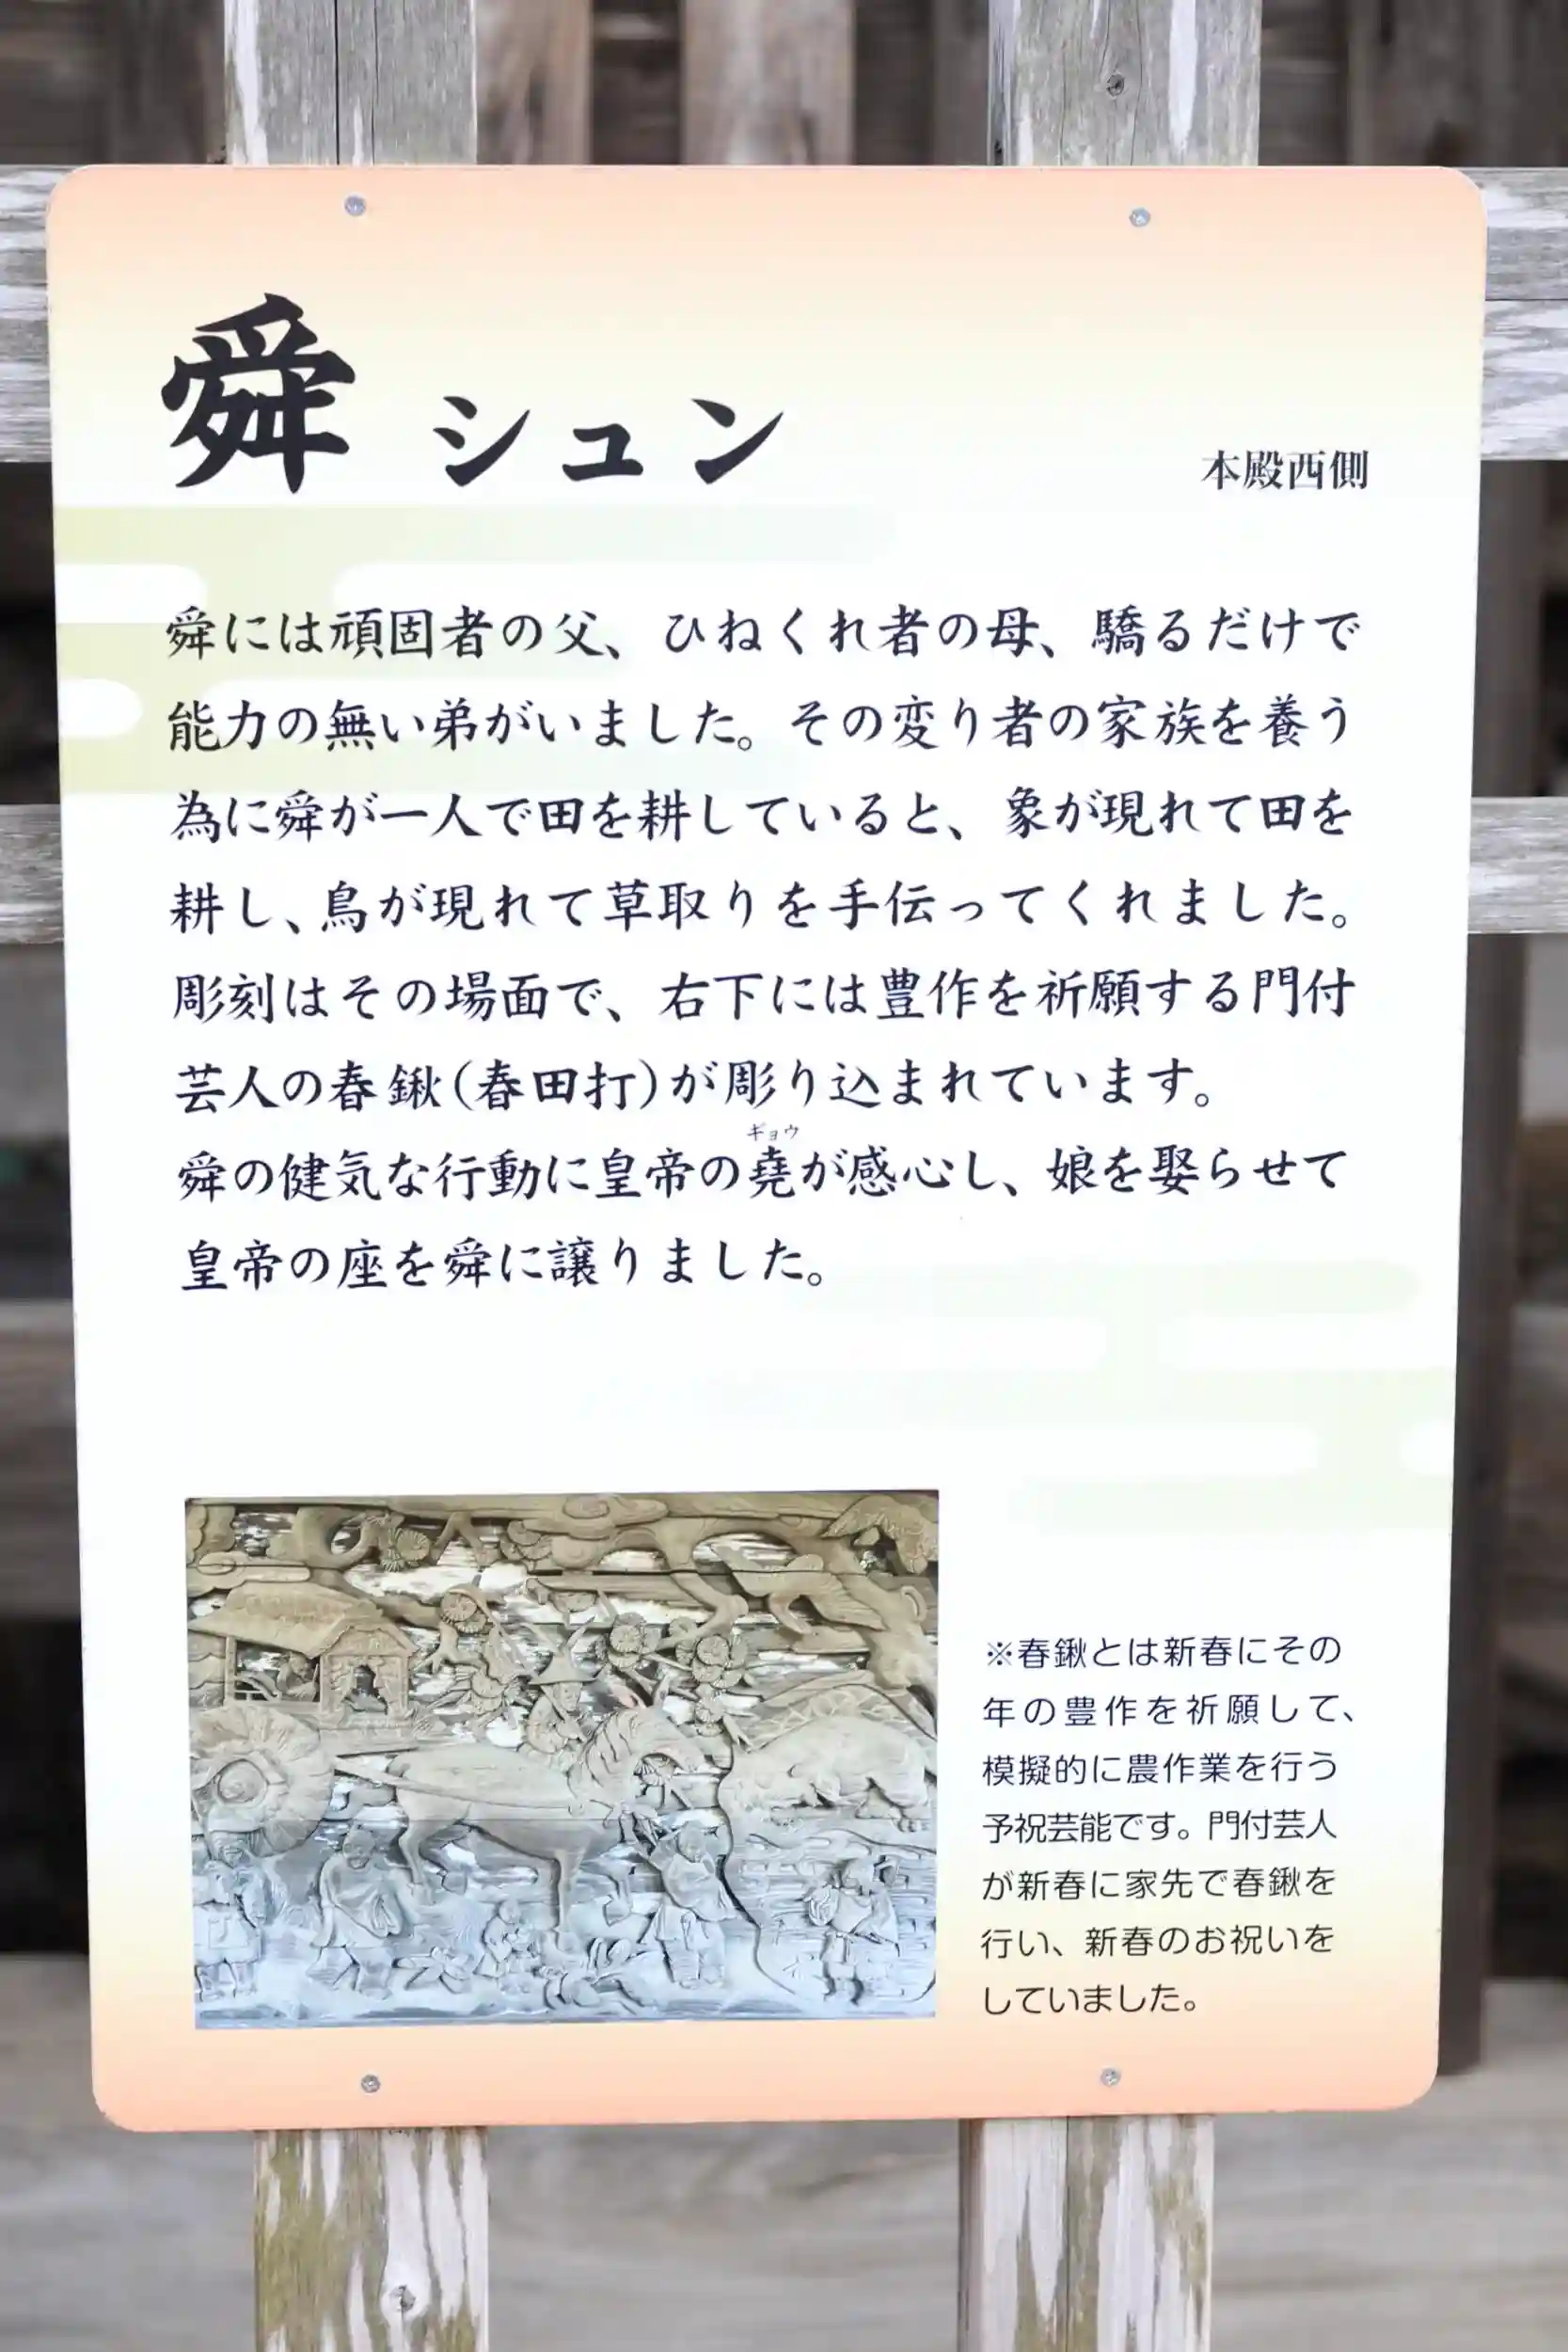 舜 シュン
本殿西側
舜には頑固者の父、ひねくれ者の母、驕るだけで
能力の無い弟がいました。その変り者の家族を養う
為に舜が一人で田を耕していると、象が現れて田を
耕し、鳥が現れて草取りを手伝ってくれました。
彫刻はその場面で、右下には豊作を祈願する門付
芸人の春鍬(春田打)が彫り込まれています。
ギョウ
舜の健気な行動に皇帝の堯が感心し、娘を娶らせて
皇帝の座を舜に譲りました。
※春鍬とは新春にその
年の豊作を祈願して、
模擬的に農作業を行う
予祝芸能です。門付芸人
が新春に家先で春鍬を
行い、新春のお祝いを
していました。